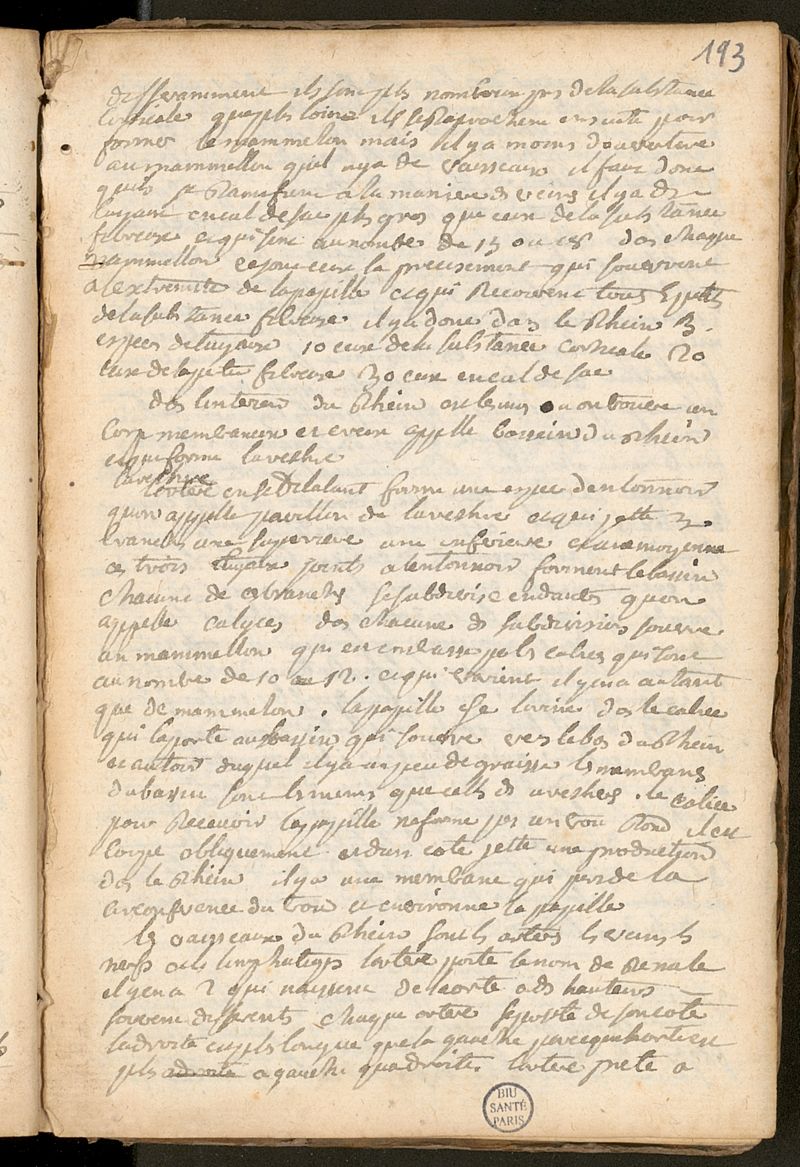 193
differamment ils sont plus nombreux pres de la substance
corticale que plus loins ils se Raprochent en suite pour
former le mammelon mais il y a moins d'ouverture
au mammellon quil n'y a de vaisseaux il faut donc
quils se Ramifient a la maniere des veins il y a des
tuyaux en cul de sac plus gros que ceux de la substance
fibreuse et qui sont au nombre de 15 ou 18 das chaque
mammellon ce sont ceux la precisement qui s'ouvrent
a l'extremite de la papille et qui Recoivent tous les petits
de la substance fibreuse il y a donc das le Rhein 3.
especes de tuyaux 10 ceux de la substance corticale 20
ceux de la petite fibreuse 30 ceux en cul de sac
das l'interieur du Rhein on trouve un
corps membraneux et creux appellé bassein du rhein
et qui forme l'avesthre
l'avesthre
en se dilatant forme une espece d'entonnoir
quon appelle pavillon de l'avesthre et qui jette 3.
branches une superieure une inferieure et une moyenne
ces trois tuyaux joints a l'entonnoir forment le bassin
chacune de ces branches se subdivise en dautres quon
appelle calyces das chacune des subdivisions s'ouvre
un mammellon qui est embassé par les calices qui sont
au nombre de 10 a 12. et qui varient il y en a autant
que de mammelon. la papille das le calice
qui la porte au bassin qui s'ouvre vers le bas du Rhein
et autour duquel il y a un peu de graisse les membranes
du bassin sont les memes que celles des uresthers. le calice
pour Recevoir la papille ne forme pas un trou Rond il est
coupé obliquement et dun coté jette une production
das le Rhein il y a une membrane qui part de la
circonference du trou et environne la papille
les vaisseaux du Rhein sont les arteres les veines les
nerfs et les limphatiqs l'artere porte le nom de Renale
il y en a 2 qui naissent de l'aorte a des hauteurs
souvent differents chaque artere se porte de son coté
la droite est plus longue que la gauche parceque l'aorte est
plus adroite a gauche qua droite. l'artere prete a
BIU
SANTÉ
PARIS